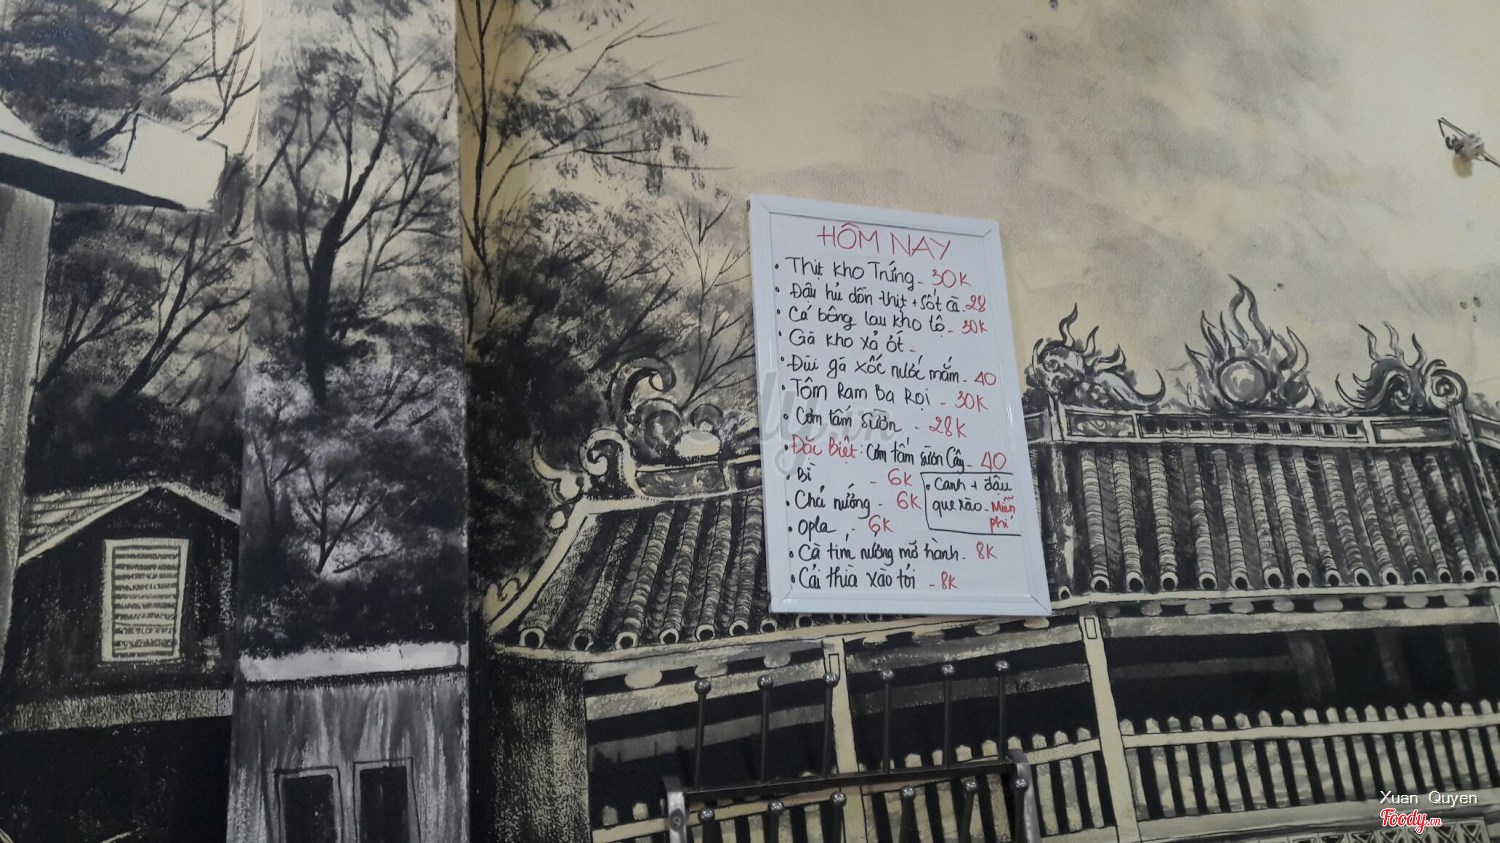 HÔM NAY
• Thịt kho Trứng - 30K
• Đậu hủ dồn thịt + sốt cà - 28
• Cá bông lau kho tộ - 30K
• Gà kho xả ớt -
• Đùi gà xốc nước mắm - 40
• Tôm Ram Ba Rọi - 30K
• Cơm tấm sườn - 28K
• Đặc Biệt: Cơm tấm sườn Cây - 40
• Bì - 6K
• Chả nướng - 6K
• Canh + dầu
que xào - Miễn
phí
• opla - 6K
• Cà tím nướng mỡ hành - 8K
• Cải thìa xào tỏi - 8K
Xuan Quyen
Foody.vn